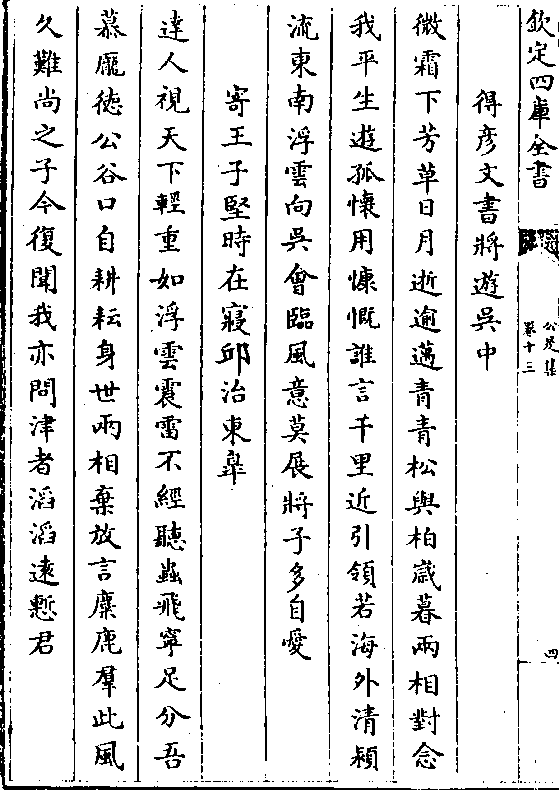 欽定四庫全書
公是集
卷十三
四
得彦文書將遊吳中
微霜下芳草日月逝逾邁青青松與柏歲暮兩相對念
我平生遊孤懷用慷慨誰言千里近引領若海外清潁
流東南浮雲向吳會臨風意莫展將子多自愛
寄王子堅時在寢邱治東臯
達人視天下輕重如浮雲震雷不經聽蟲飛寧足分吾
慕龎徳公谷口自耕耘身世兩相棄放言麋鹿羣此風
久難尚之子今復聞我亦問津者滔滔遠慙君